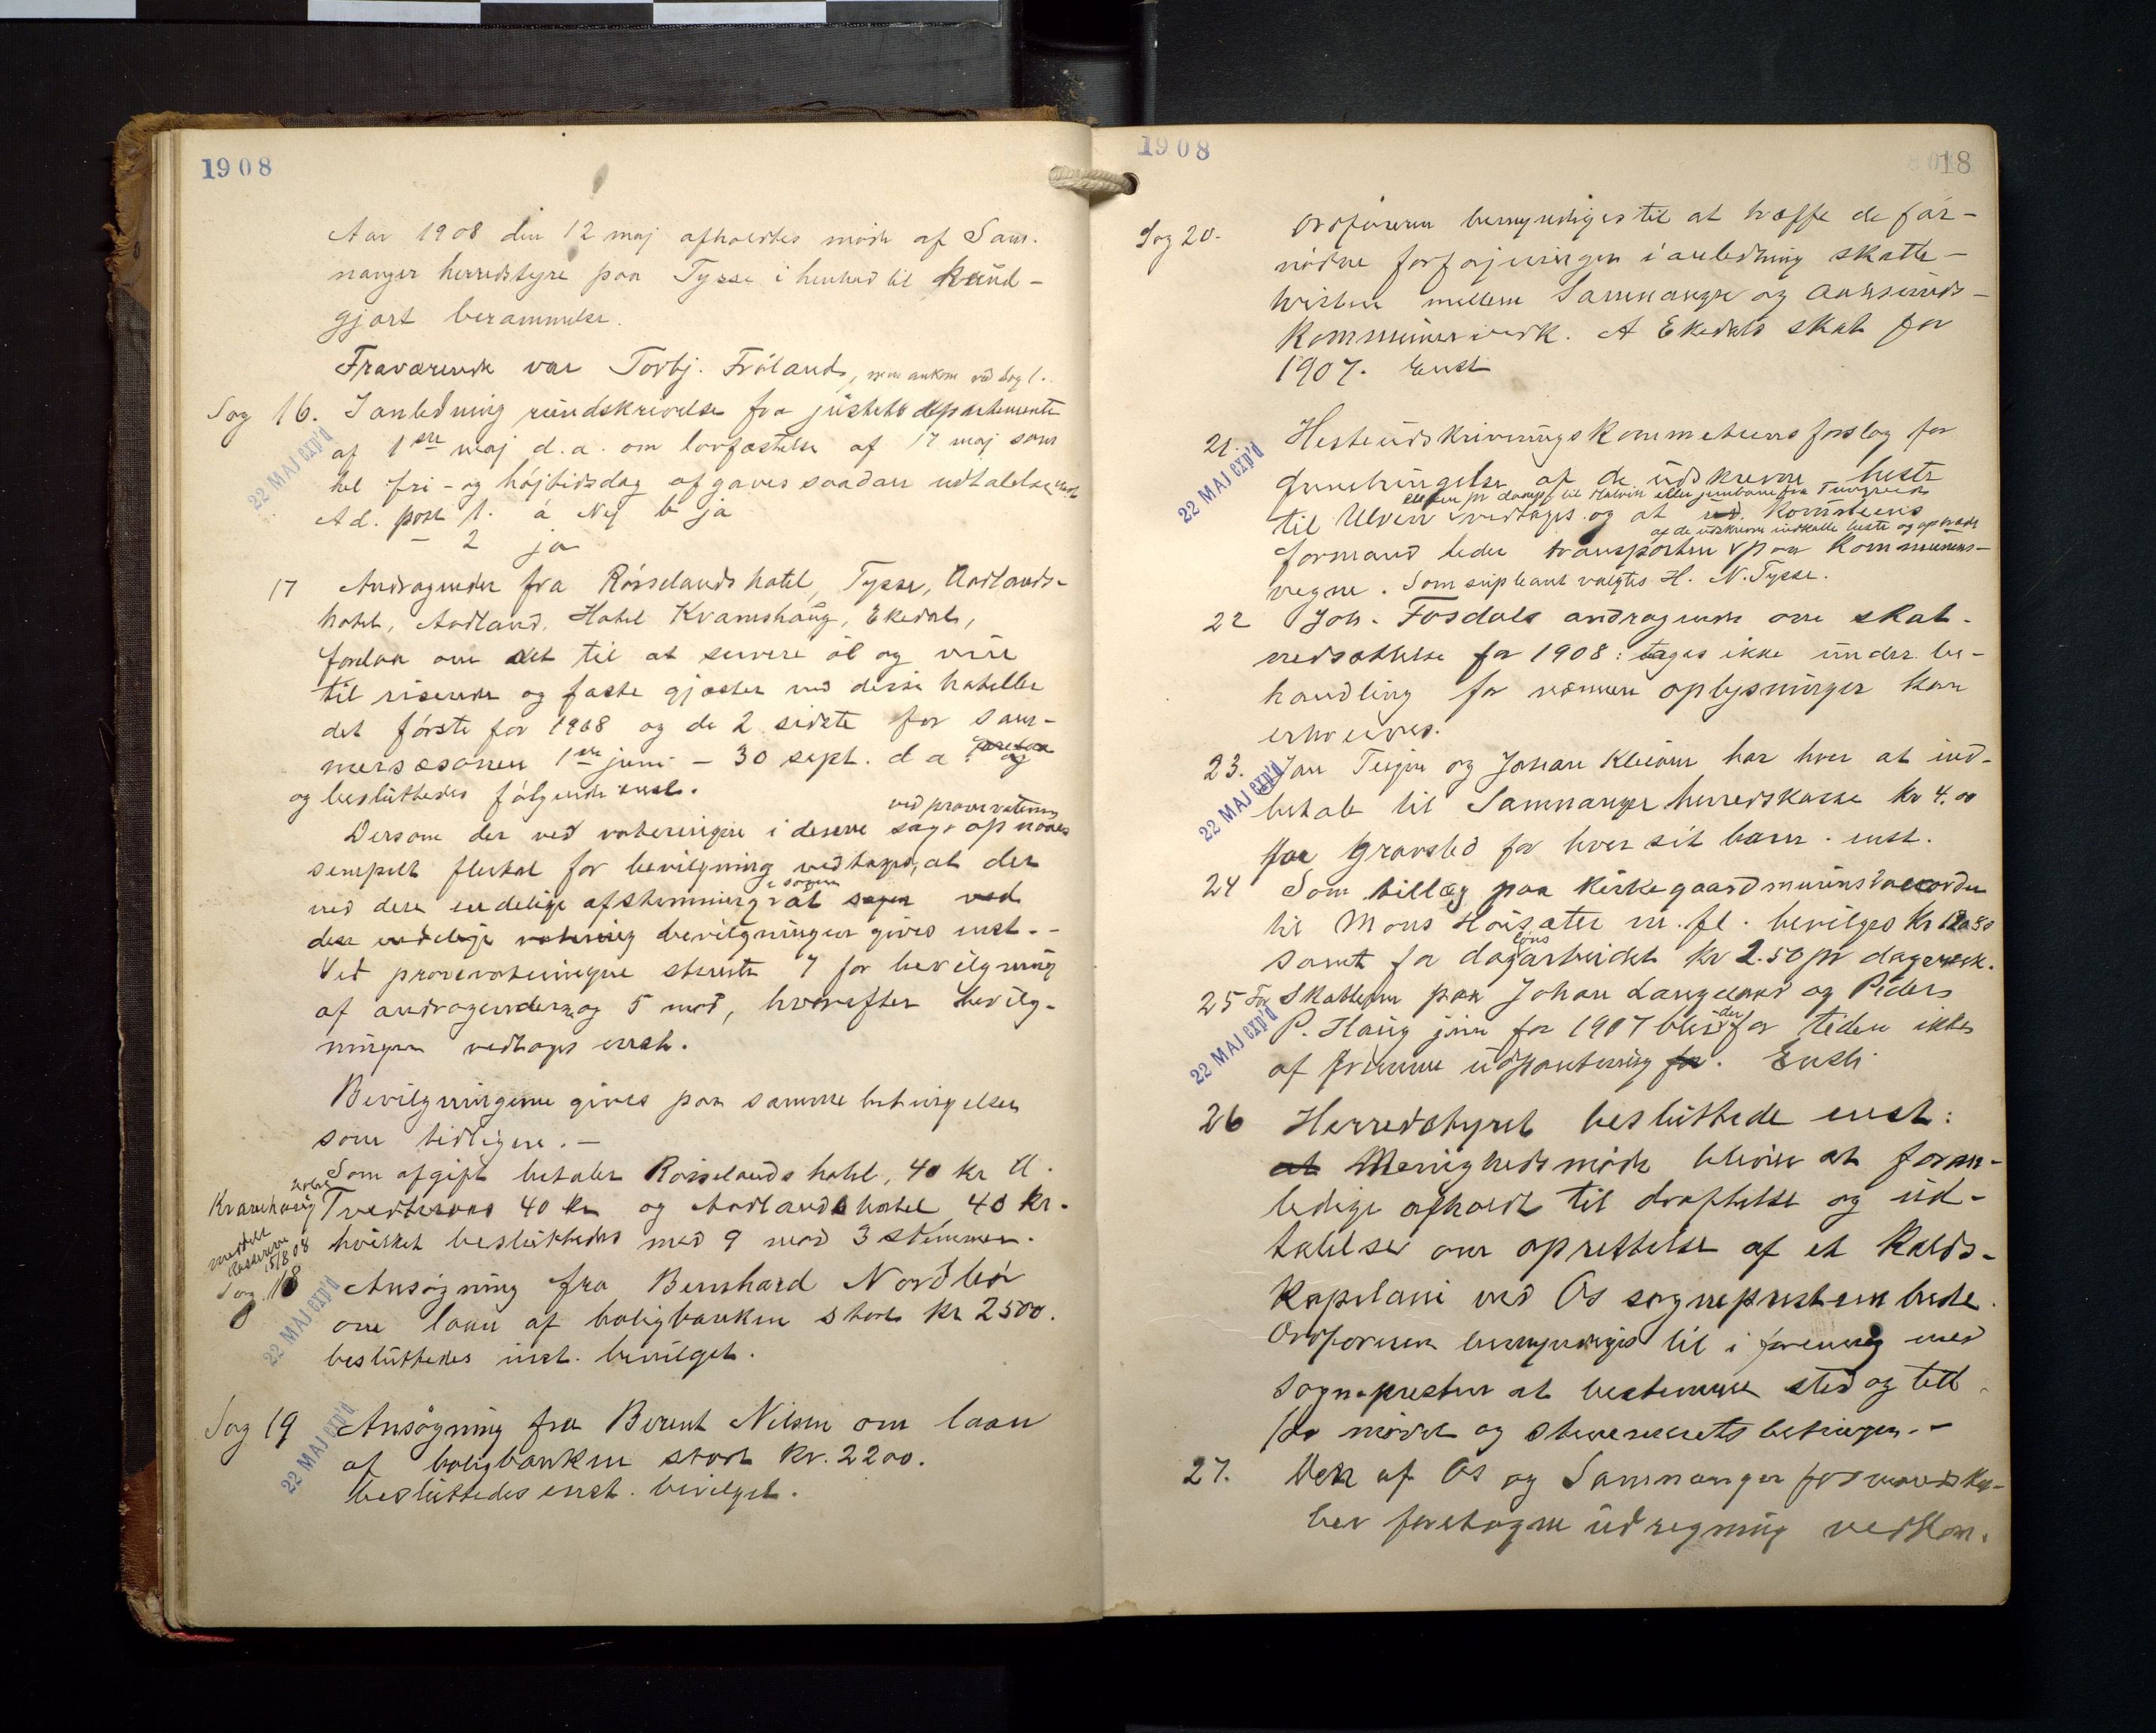 1908
Aar 1908 den 12 maj afholdtes møde af Sam-
nanger herredstyre paa Tysse i henhold til kund-
gjort berammelse.
Fraværende var Torbj. Fröland, som ankom ved sag 1.
Sag 16. I anledning rundskrivelse fra justits departementet
af 1ste maj d.a. om lovfæstelse af 17 maj som
hel fri- og højtidsdag afgaves saadan udtalelse enst
Ad. post 1. a Nej b ja
— 2 ja
22 MAJ exp'd
17 Andragender fra Rösselands hotel, Tysse, Aadlands-
hotel, Aadland, Hotel Kvamshaug, Ekedal,
om ret til at servere öl og vin
til reisende og faste gjæster ved disse hoteller
det förste for 1908 og de 2 sidste for som-
mersæsonen 1ste juni - 30 sept. d a
og besluttedes fölgende enst.
Dersom der ved voteringen i denne sag ved prøvevotering opnaaes
simpelt flertal for bevilgning vedtages, at der
ved den endelige afstemning i sagen at sagen ved
den endelige votering bevilgningen gives enst. -
Ved prøvevoteringen stemte 7 for bevilgning
af andragenderne og 5 mod, hvorefter bevilg-
ningen vedtages enst.
Bevilgningerne gives paa samme betingelser
som tidligere. —
Som afgift betaler Rösselands hotel, 40 kr A.
Kvamshaug hotel
Tvedteraas 40 kr og Aadlands hotel 40 kr.
hvilket besluttedes med 9 mod 3 stemmer.
meddelt
kassereren
15/8 08
Sag 18 Ansögning fra Bernhard Nordbö
om laan af boligbanken stort kr 2500.
besluttedes enst. bevilget.
22 MAJ exp'd
Sag 19 Ansögning fra Berent Nilsen om laan
af boligbanken stort kr. 2200.
besluttedes enst. bevilget.
22 MAJ exp'd
1908
18
Sag 20. Ordföreren bemyndiges til at træffe de for-
nödne forföjninger i anledning skatte-
tvisten mellem Samnanger og
Kommune vedk. A Ekedals skat for
1907. Enst
21. Hesteudskrivningskommetiens forslag for
frembringelse af de udskrevne heste
til Ulven vedtages og at Komiteens
enten pr damp til Hatvik eller jernbane fra Tunggreids
formand leder transporten paa Kommunens-
af de udskrevne indkalle heste og
vegne. Som supleant valgtes H. N. Tysse.
22 MAJ exp'd
22 Joh. Fosdals andragende om skat-
nedsættelse for 1908: tages ikke under be-
handling för nærmere oplysninger kan
erhverves.
23. Jan Teigen og Johan Kleiven har hver at ind-
betale til Samnanger herredskasse kr 4.00
for gravsted for hver sit barn. enst.
22 MAJ exp'd
24 Som tillæg paa kirkegaardmurens akorden
til Mons Höisæter m. fl. bevilges kr
samt for daglönsarbeidet kr 2.50 pr dagsverk.
25 For Skatten paa Johan Langeland og Peders
P. Haug jun for 1907 blir der for tiden ikke
af fremme udpantning for. Enst
22 MAJ exp'd
26 Herredstyret besluttede enst:
at Menighedsmöde bliver at foran-
ledige afholdt til dröftelse og ud-
talelse om oprettelse af et Kalds-
Kapelani ved Os sogneprestembede.
Ordföreren bemyndiges til i forening med
Sognepresten at bestemme sted og tid
for mödet og stemmerets betingen. -
27. Den af Os og Samnanger formandska-
ber foretagne udregning vedkom.